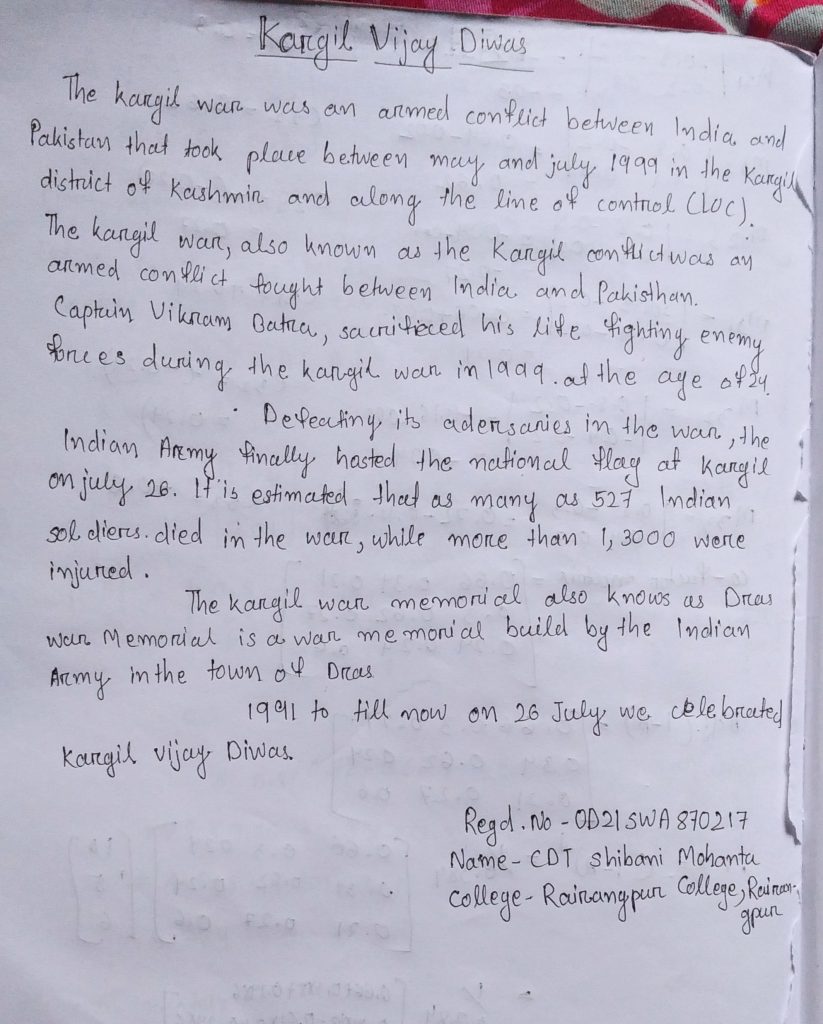 Kargil Vijay Diwas
The kargil war was an armed conflict between India and
Pakistan that took place between may and july 1999 in the Kargil
district of Kashmir and along the line of control (LOC).
The kargil war, also known as the Kargil conflict was an
armed conflict fought between India and Pakisthan.
Captain Vikram Batra, sacrificed his life fighting enemy
forces during the kargil war in 1999. at the age of 24.
Defeating its adersaries in the war, the
Indian Army finally hosted the national flag at kargil
on july 26. It is estimated that as many as 527 Indian
soldiers. died in the war, while more than 1,3000 were
injured.
The kargil war memorial also knows as Dras
war Memorial is a war memorial build by the Indian
Army in the town of Dras
1991 to till now on 26 July we celebrated
Kargil vijay Diwas.
Regd. No - OD21SWA870217
Name - CDT Shibani Mohanta
College - Rairangpur College, Rairan-
gpur